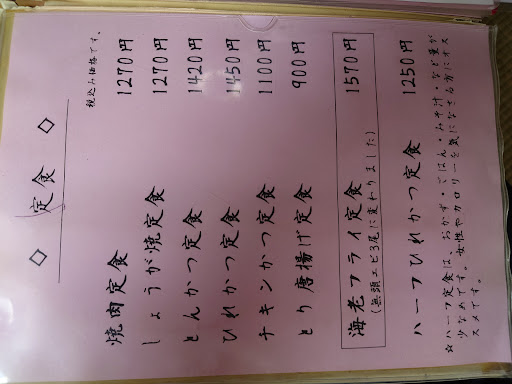 ◇ 定食 ◇
税込み価格です。
焼肉定食 1270円
しょうが焼定食 1270円
とんかつ定食 1420円
ひれかつ定食 1450円
チキンかつ定食 1100円
とり唐揚げ定食 900円
海老フライ定食 1570円
(無頭エビ3尾に変わりました)
ハーフひれかつ定食 1250円
☆ハーフ定食は、おかず・ごはん・みそ汁・など量が
少なめです。女性やカロリーを気になさる方にオス
スメです。